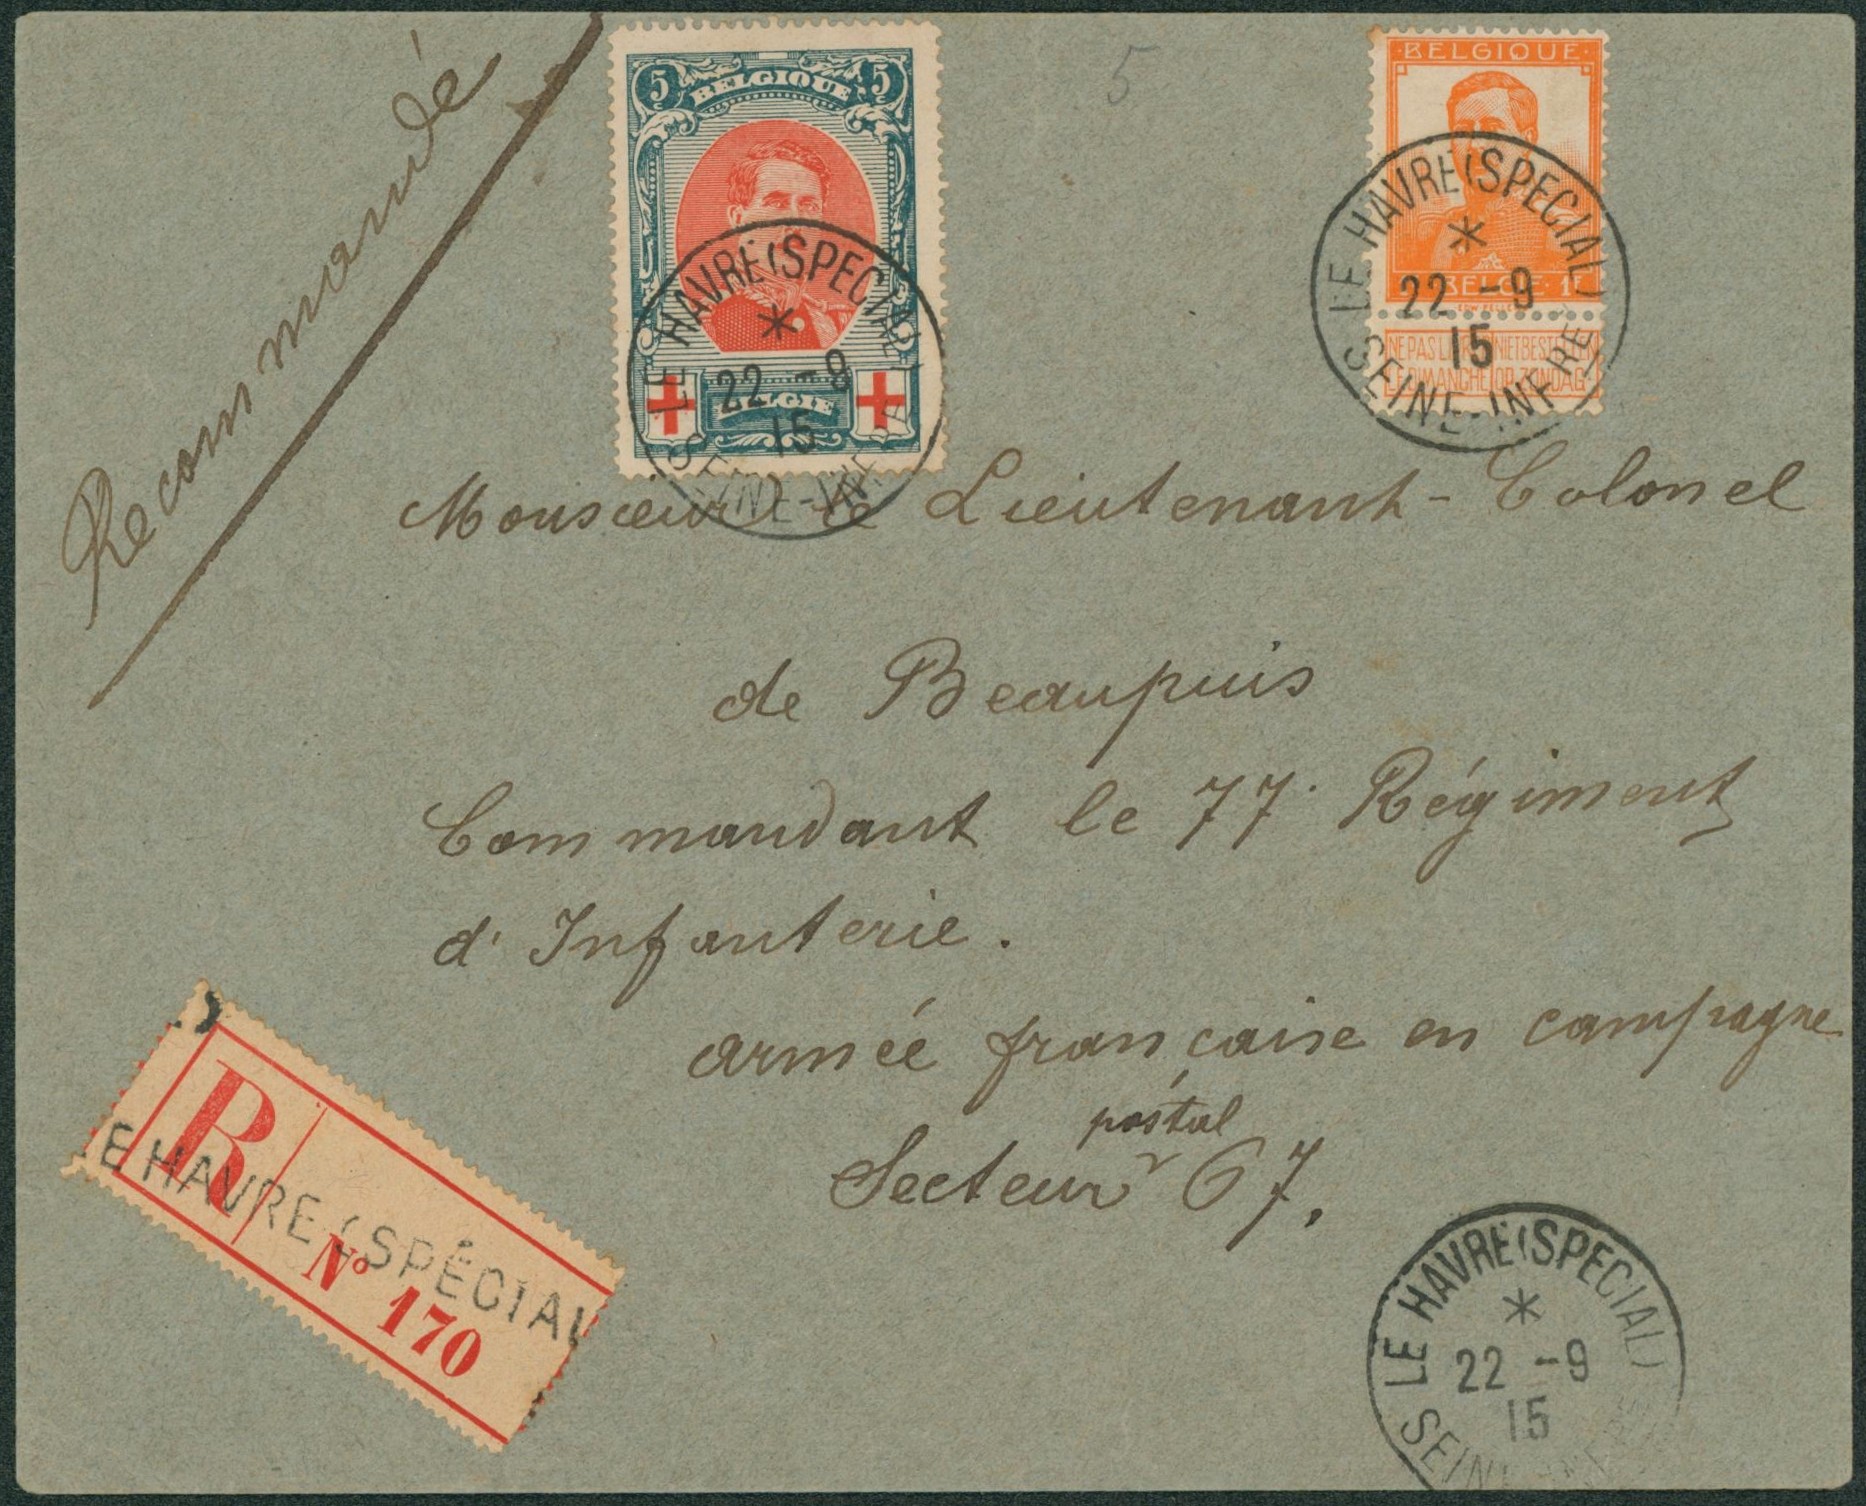 Recommandé
5
5 BELGIQUE 5
BELGIE
LE HAVRE (SPECIAL)
22 -9
15
SEINE-INFRE
BELGIQUE
BELGIË 1F
NE PAS LIVRER NIET BESTELLEN
LE DIMANCHE OP ZONDAG
LE HAVRE (SPECIAL)
22 -9
15
SEINE-INFRE
Monsieur le Lieutenant-Colonel
de Beaupuis
Commandant le 77. Régiment
d'Infanterie.
armée française en campagne
postal
Secteur 67.
R
LE HAVRE (SPÉCIAL
No 170
LE HAVRE (SPECIAL)
22 -9
15
SEINE-INFRE